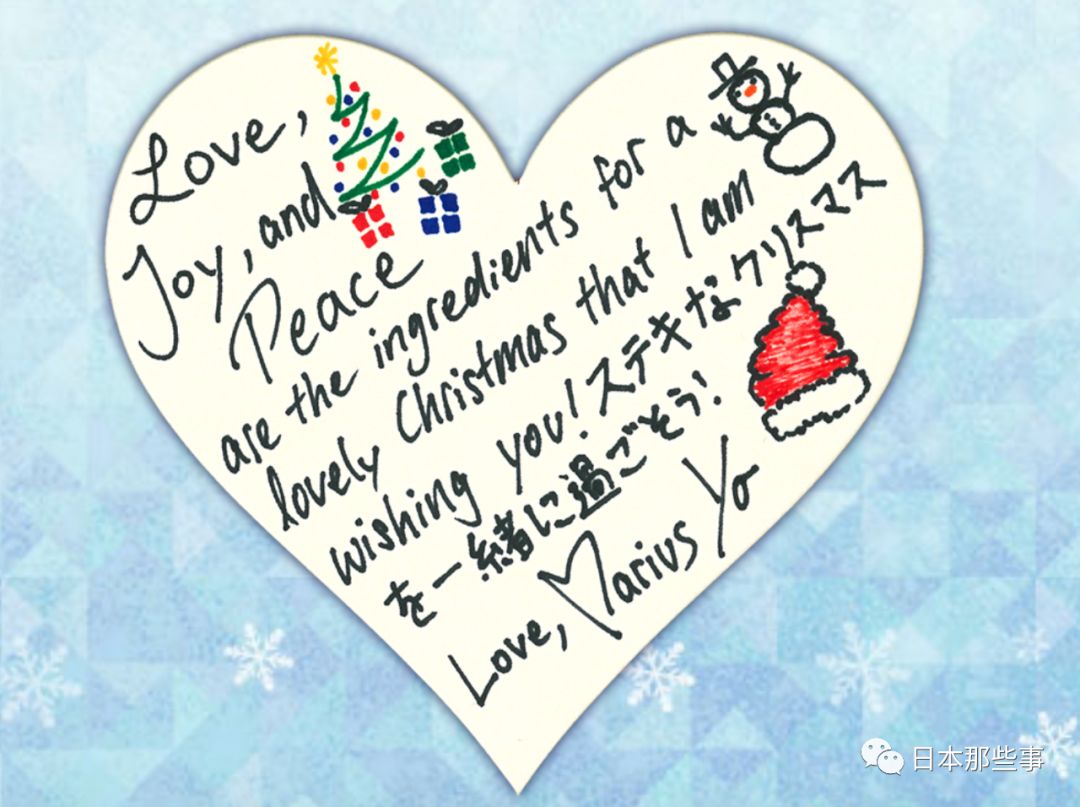 Love,
Joy, and
Peace
are the ingredients for a
lovely Christmas that I am
wishing you! ステキなクリスマス
を一緒に過ごそう!
Love, Marius Yo
日本那些事